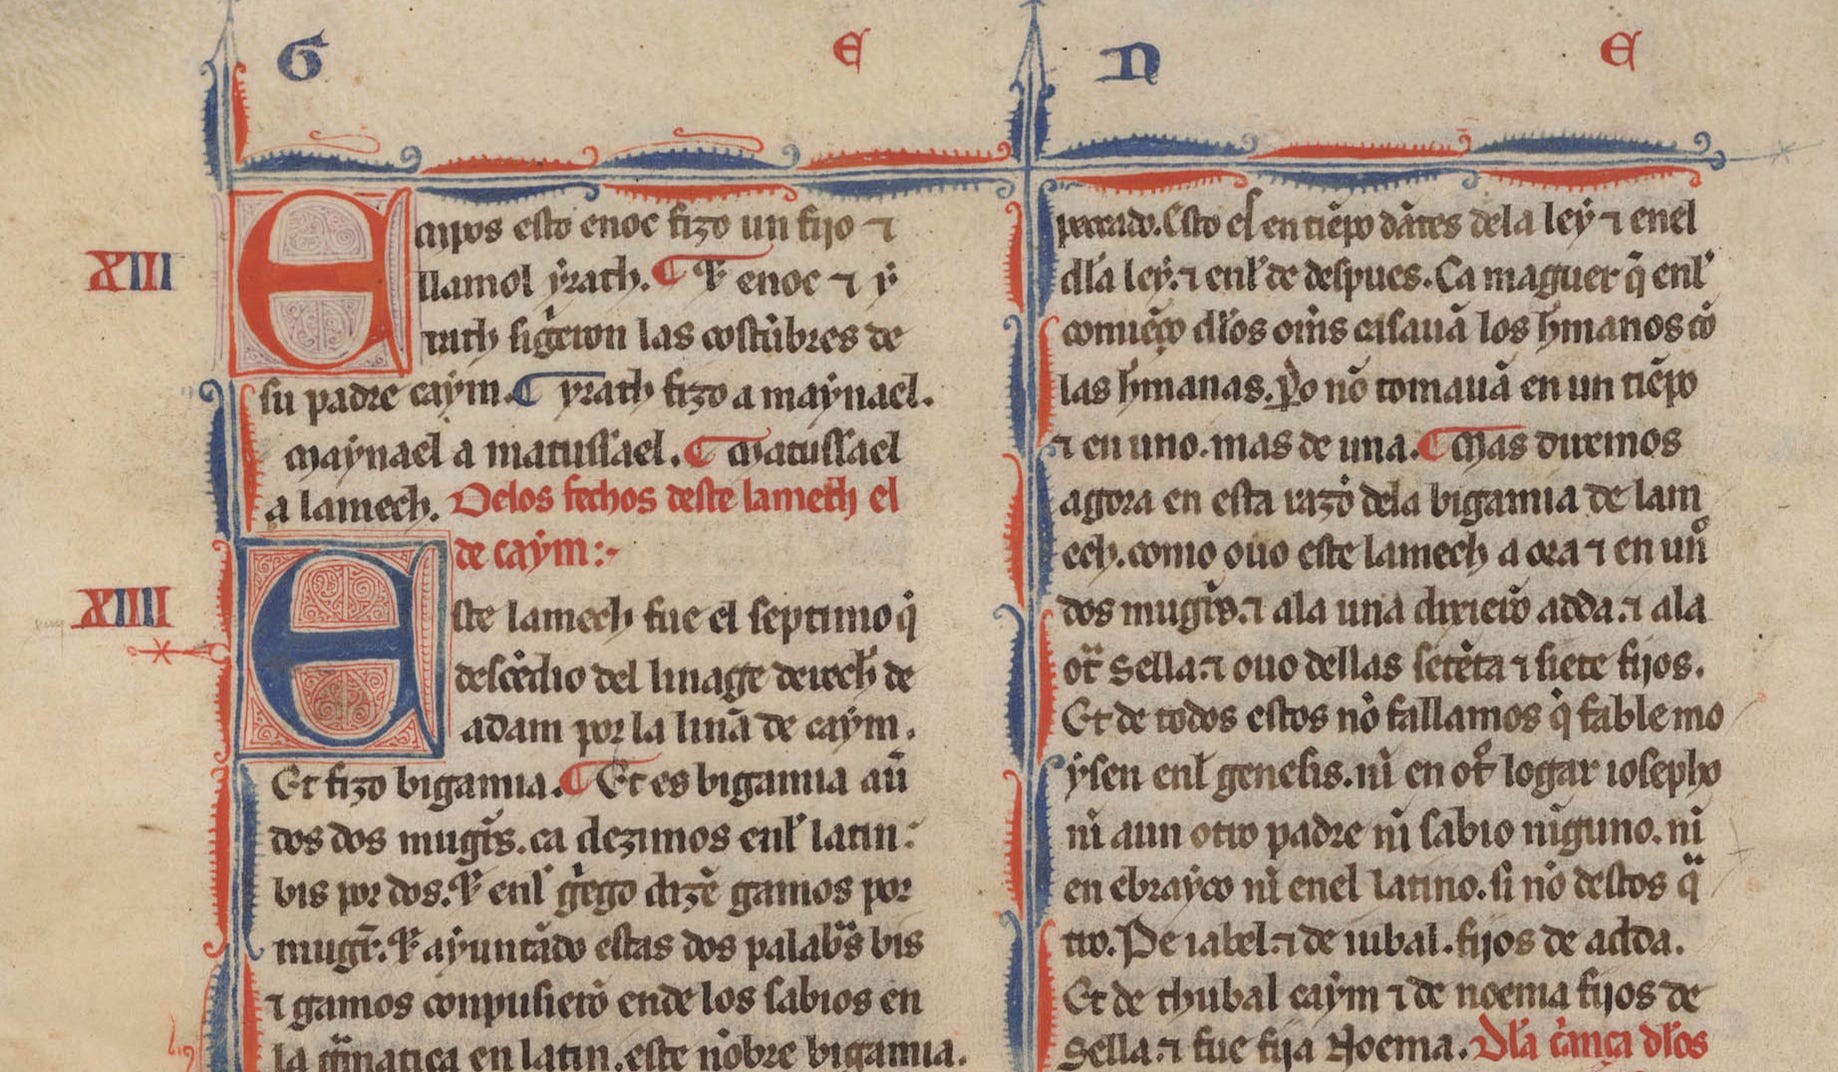 G E N E
XIII
Empos esto enoc fizo un fijo ⁊
llamol yrath. ¶ ⁊ enoc ⁊ y
rath sigieron las costũbres de
su padre caym. ¶ yrath fizo a maynael.
Maynael a matussael. ¶ Matussael
a lamech. Delos fechos deste lamech el
de caym:-
XIIII
Este lamech fue el septimo q̃
descẽdio del linage derech̃ de
adam por la linã de caym.
Et fizo bigamia. ¶ Et es bigamia aũ
dos dos mugr̃s. ca dezimos enl latin:
bis por dos. ⁊ enl griego dizẽ gamos por
mugr̃. ⁊ ayuntãdo estas dos palabras bis
⁊ gamos conpusierõ ende los sabios en
la gramatica en latin. este nõbre bigamia.
peccado. Esto es en tiẽpo dãtes dela ley ⁊ enel
dla ley. ⁊ enl de despues. Ca maguer q̃ enl
comiẽço dlos om̃s casauã los h̃manos cõ
las h̃manas. p̱o nõ tomauã en un tiẽpo
⁊ en uno. mas de una. ¶ Mas diremos
agora en esta razõ dela bigamia de lam
ech. como ouo este lamech a ora ⁊ en uno
dos mugr̃s. ⁊ ala una dixierõ adda. ⁊ ala
otra Sella. ⁊ ouo dellas setẽta ⁊ siete fijos.
Et de todos estos nõ fallamos q̃ fable mo
ysen enl genesis. nĩ en otro logar iosepho
nĩ aun otro padre nĩ sabio nĩguno. nĩ
en ebrayco nĩ enel latino. si nõ destos qua
tro. De iabel. ⁊ de iubal. fijos de adda.
Et de thubal caym ⁊ de noema fijos de
Sella. ⁊ fue fija Noema. Dla criança dlos